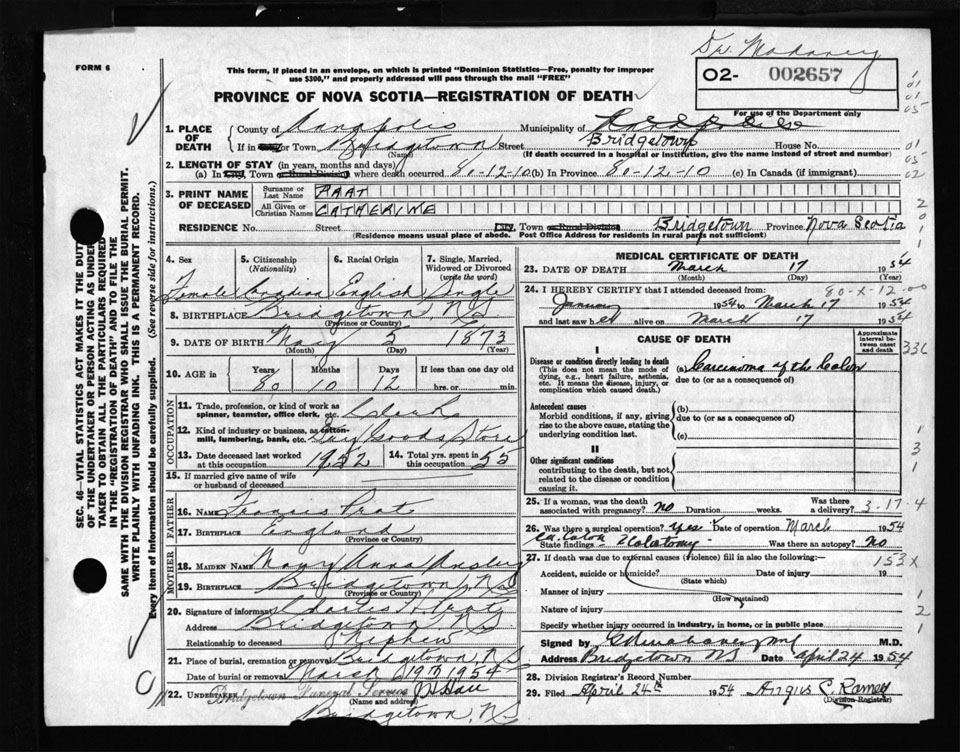 Dr.
FORM 6
This form, if placed in an envelope, on which is printed "Dominion Statistics—Free, penalty for improper
use $300," and properly addressed will pass through the mail "FREE"
02- 002657
For use of the Department only
PROVINCE OF NOVA SCOTIA—REGISTRATION OF DEATH
1. PLACE OF DEATH
County of Annapolis Municipality of
If in City or Town Bridgetown Street Bridgetown House No.
(Name) (If death occurred in a hospital or institution, give the name instead of street and number)
2. LENGTH OF STAY (in years, months and days)
(a) In City, Town or Rural Division where death occurred 80-12-10 (b) In Province 80-12-10 (c) In Canada (if immigrant)
3. PRINT NAME OF DECEASED
Surname or Last Name PRAT
All Given or Christian Names CATHERINE
RESIDENCE No. Street City, Town or Rural Division Bridgetown Province Nova Scotia
(Residence means usual place of abode. Post Office Address for residents in rural parts not sufficient)
4. Sex 5. Citizenship (Nationality) 6. Racial Origin 7. Single, Married, Widowed or Divorced (write the word)
Female Canadian English Single
8. BIRTHPLACE Bridgetown, N.S.
(Province or Country)
9. DATE OF BIRTH May 5 1873
(Month) (Day) (Year)
10. AGE in Years Months Days If less than one day old
80 10 12 hrs. or min.
OCCUPATION
11. Trade, profession, or kind of work as
spinner, teamster, office clerk, etc. Clerk
12. Kind of industry or business, as cotton-
mill, lumbering, bank, etc. Dry Goods Store
13. Date deceased last worked
at this occupation 1952
14. Total yrs. spent in
this occupation 55
15. If married give name of wife
or husband of deceased
FATHER
16. Name Francis Prat
17. Birthplace England
(Province or Country)
MOTHER
18. MAIDEN NAME Mary Anna
19. BIRTHPLACE Bridgetown, N.S.
(Province or Country)
20. Signature of informant Charles H. Prat
Address Bridgetown N.S.
Relationship to deceased Nephew
21. Place of burial, cremation or removal Bridgetown, N.S.
Date of burial or removal March 1954
22. UNDERTAKER Bridgetown Funeral Service
(Name and address)
Bridgetown, N.S.
MEDICAL CERTIFICATE OF DEATH
23. DATE OF DEATH March 17 1954
(Month) (Day) (Year)
24. I HEREBY CERTIFY that I attended deceased from: 80-X-12-00
January 1954 to March 17 1954
and last saw her alive on March 17 1954
CAUSE OF DEATH
Approximate interval between onset and death
I
Disease or condition directly leading to death
(This does not mean the mode of
dying, e.g., heart failure, asthenia,
etc. It means the disease, injury, or
complication which caused death.)
(a) Carcinoma of the Colon
due to (or as a consequence of)
Antecedent causes
Morbid conditions, if any, giving
rise to the above cause, stating the
underlying condition last.
(b)
due to (or as a consequence of)
(c)
II
Other significant conditions
contributing to the death, but not
related to the disease or condition
causing it.
25. If a woman, was the death
associated with pregnancy? No Duration weeks. Was there a delivery? 3-17-4
26. Was there a surgical operation? Yes Date of operation March 1954
State findings Was there an autopsy? No
27. If death was due to external causes (violence) fill in also the following:— 153X
Accident, suicide or homicide? Date of injury 19
(State which)
Manner of injury
(How sustained)
Nature of injury
Specify whether injury occurred in industry, in home, or in public place
Signed by M.D.
Address Bridgetown NS Date April 24 1954
28. Division Registrar's Record Number
29. Filed April 24th 1954 Angus C. Ramey
(Division Registrar)
SEC. 46—VITAL STATISTICS ACT MAKES IT THE DUTY
OF THE UNDERTAKER OR PERSON ACTING AS UNDER-
TAKER TO OBTAIN ALL THE PARTICULARS REQUIRED
IN THE "REGISTRATION OF DEATH" AND TO FILE THE
SAME WITH THE DIVISION REGISTRAR WHO SHALL ISSUE THE BURIAL PERMIT.
WRITE PLAINLY WITH UNFADING INK. THIS IS A PERMANENT RECORD.
Every item of information should be carefully supplied. (See reverse side for instructions.)